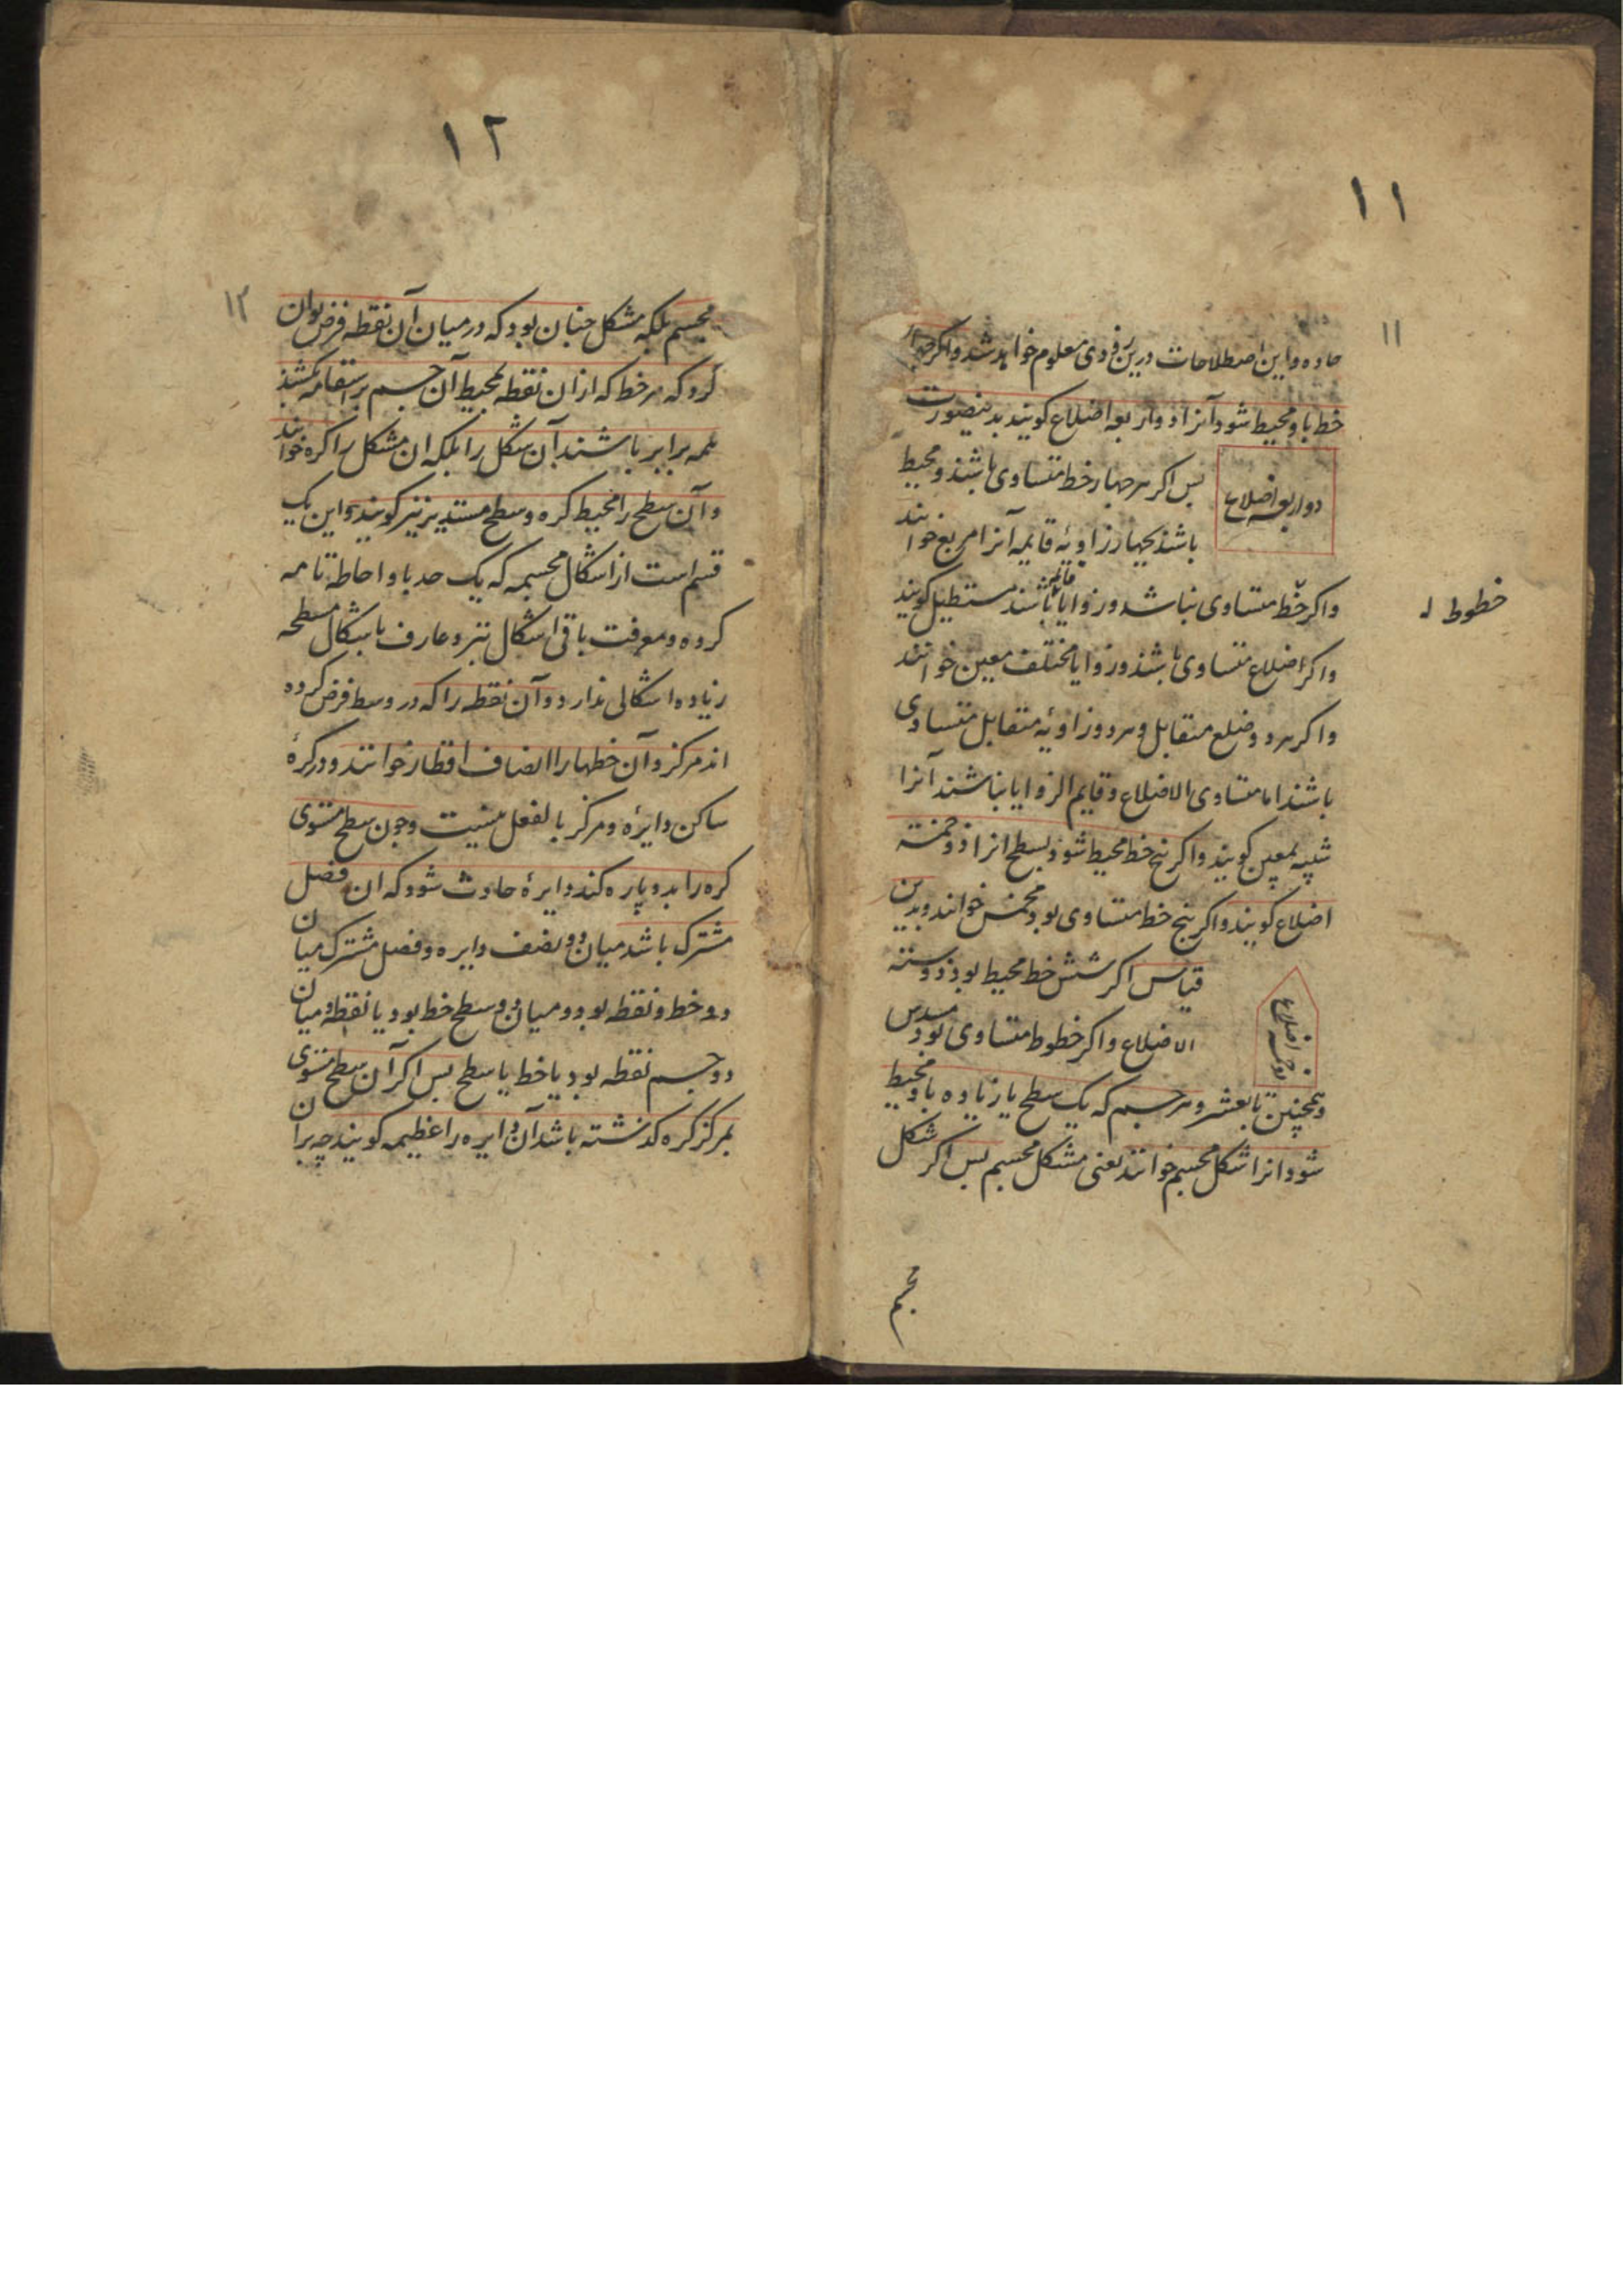 ۱۱
۱۱
حاده و این اصطلاحات درین زودی معلوم خواهد شد و اگر چهار
خط باو محیط شود آنرا ذو اربعه اضلاع کویند بدینصورت
ذو اربعه اضلاع
پس اکر هر چهار خط متساوی باشند و محیط
باشند بچهار زاویهٔ قایمه آنرا مربع خوانند
و اکر خط متساوی نباشد و زوایا قائمه باشند مستطیل کویند
خطوط
و اکر اضلاع متساوی باشند و زوایا مختلف معین خوانند
و اکر هر دو ضلع متقابل و هر دو زاویه متقابل متساوی
باشند اما متساوی الاضلاع و قایم الزوایا نباشند آنرا
شبیه بمعین کویند و اکر پنج خط محیط شود بسطح انرا ذو خمسة
اضلاع کویند و اکر پنج خط متساوی بود مخمس خوانند و بدین
قیاس اکر شش خط محیط بود ذو ستة
الاضلاع و اکر خطوط متساوی بود مسدس
ذو خمسه اضلاع
و همچنین تا بعشر و هر جسم که یک سطح یا زیاده باو محیط
شود انرا شکل مجسم خوانند یعنی مشکل مجسم پس اکر شکل
مجسم
۱۲
۱۲
مجسم بلکه مشکل چنان بود که در میان آن نقطه فرض توان
کرد که هر خط که از ان نقطه بمحیط آن جسم بر استقامه بکشند
همه برابر باشند آن شکل را بلکه ان مشکل را کره خوانند
و آن سطح را محیط کره و سطح مستدیر نیز کویند و این یک
قسم است از اشکال مجسمه که یک حد باو احاطه تامه
کرده و معرفت باقی اشکال نیز و عارف باشکال مسطحه
زیاده اشکالی ندارد و آن نقطه را که در وسط فرض کرده
اند مرکز و آن خطها را انصاف اقطار خوانند و در کرهٔ
ساکن دایره و مرکز بالفعل نیست و چون سطح مستوی
کره را بدو پاره کند دایرهٔ حادث شود که ان فصل
مشترک باشد میان دو نصف دایره و فصل مشترک میان
دو خط و نقطه بود و میان دو سطح خط بود یا نقطه و میان
دو جسم نقطه بود یا خط یا سطح پس اکر آن سطح مستوی
بمرکز کره کذشته باشد آن دایره را عظیمه کویند چه بران